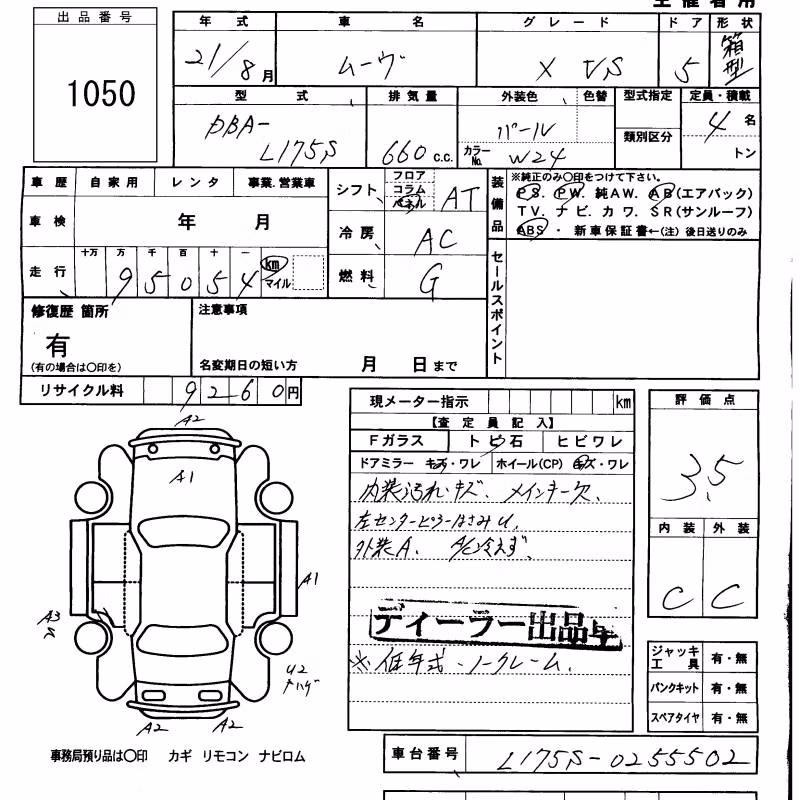 主催者用
出品番号
1050
年式 車名 グレード ドア 形状
21/8月 ムーヴ X VS 5 箱型
型式 排気量 外装色 色替 型式指定 定員・積載
DBA-L175S 660 C.C. パール カラーNo. W24 類別区分 4名 トン
車歴 自家用 レンタ 事業.営業車
車検 年 月
走行 十万 万 千 百 十 一
95054 km マイル
シフト フロア コラム パネル AT
冷房 AC
燃料 G
装備品
※純正のみ〇印をつけて下さい。
PS. PW. 純AW. AB(エアバック)
TV. ナビ. カワ. SR(サンルーフ)
ABS ・ 新車保証書←(注) 後日送りのみ
セールスポイント
修復歴 箇所
有
(有の場合は〇印を)
注意事項
名変期日の短い方 月 日まで
リサイクル料 9260円
現メーター指示 km
【査定員記入】
Fガラス トビ石 ヒビワレ
ドアミラー キズ・ワレ ホイール(CP) キズ・ワレ
内装汚れ キズ. メインキー欠.
左センターピラーはさみU.
外装A. A/C冷えず.
ディーラー出品車
※低年式・ノークレーム.
評価点
3.5
内装 外装
C C
ジャッキ工具 有・無
パンクキット 有・無
スペアタイヤ 有・無
A2
A1
A1
A3
S
U2
A2 A2
事務局預り品は〇印 カギ リモコン ナビロム
車台番号 L175S-0255502